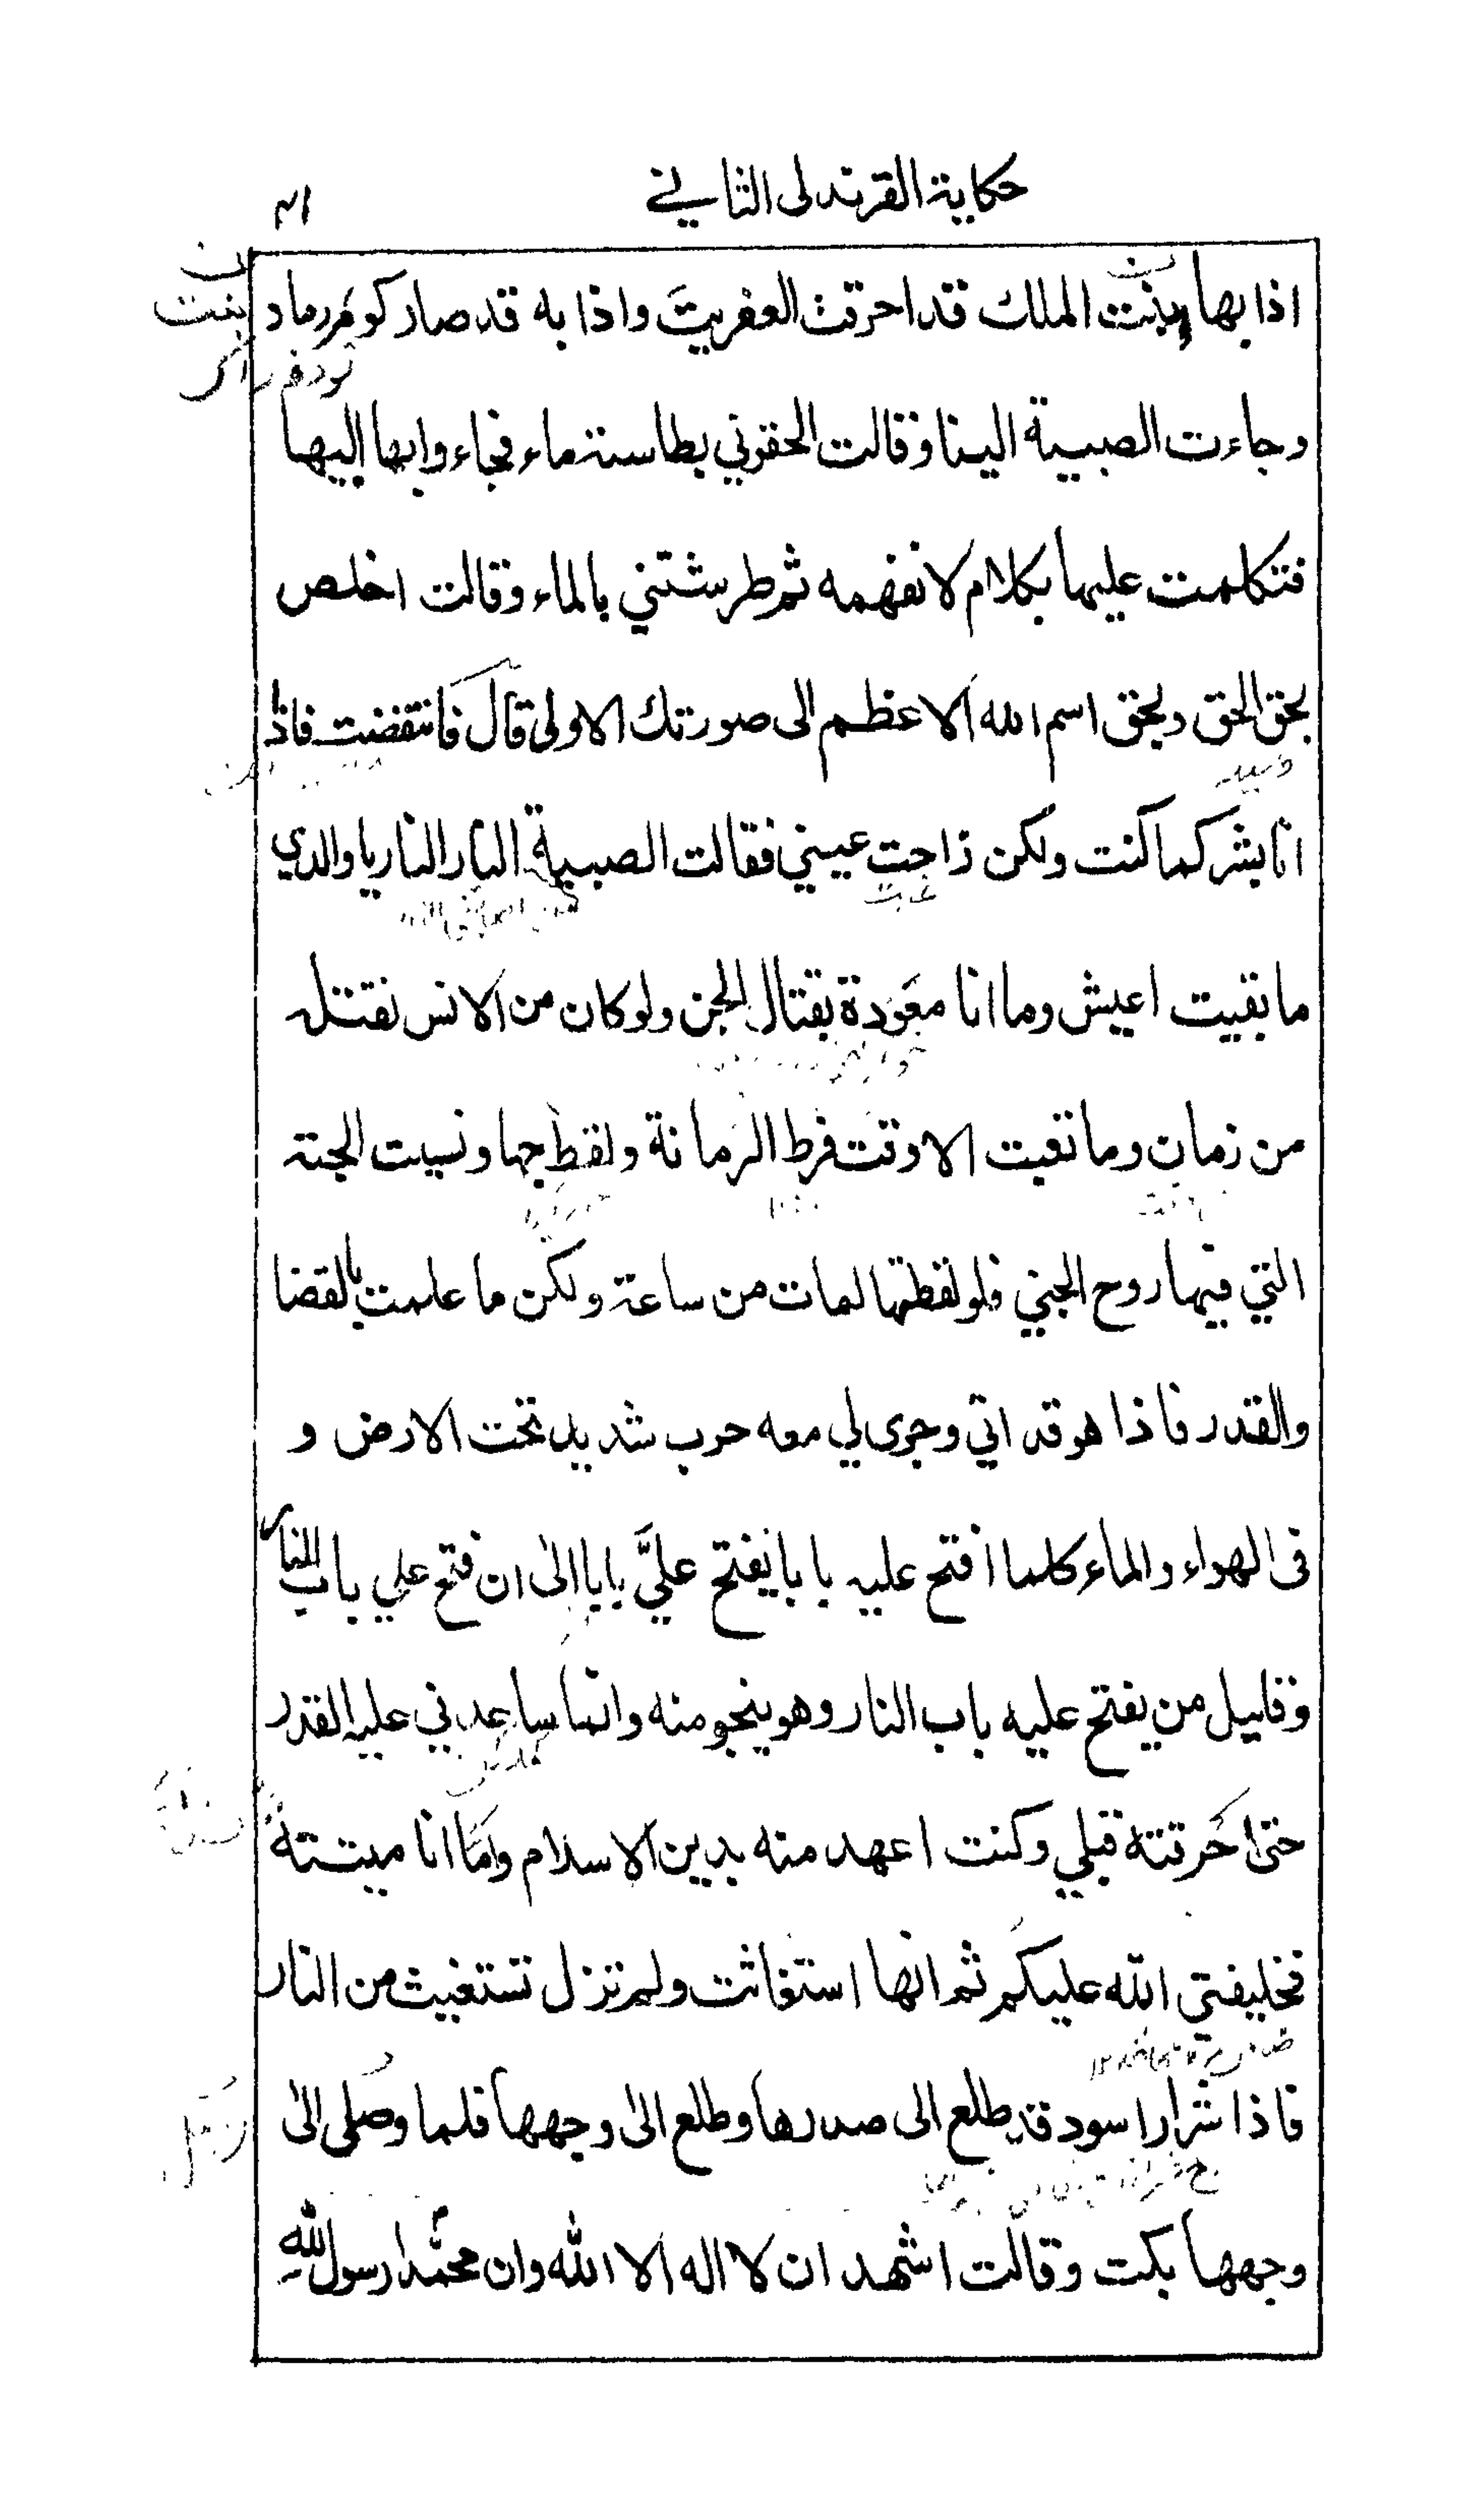 حكاية القرندلى الثاني
اذا بها بنت الملك قد احرقت العفريت واذا به قد صار كوم رماد
وجاءت الصبية الينا وقالت الحقوني بطاسة ماء فجاء وابها اليها
فتكلمت عليها بكلام لا نفهمه ثم طرشتني بالماء وقالت اخلص
بحق الحق وبحق اسم الله الاعظم الى صورتك الاولى قال فانتفضت فاذا
انا بشر كما كنت ولكن راحت عيني فقالت الصبية النار النار يا والدي
ما بقيت اعيش وما انا معوّدة بقتال الجن ولو كان من الانس نقتله
من زمان وما تعبت الا وقت فرط الرمانة ولقط حبها ونسيت الحبة
التي فيها روح الجني فلو لقطتها لمات من ساعة ولكن ما علمت بالقضا
والقدر فاذا هو قد اتي وجرى لي معه حرب شديد تحت الارض و
فى الهواء والماء كلما افتح عليه بابا يفتح عليَّ بابا الى ان فتح علي باب النار
وقليل من يفتح عليه باب النار وهو ينجو منه وانما ساعدني عليه القدر
حتى احرقته قبلي وكنت اعهد منه بدين الاسلام وامّا انا ميتة
فخليفتي الله عليكم ثم انها استغاثت ولم تزل تستغيث من النار
فاذا شرار اسود قد طلع الى صدرها وطلع الى وجهها فلما وصل الى
وجهها بكت وقالت اشهد ان لا اله الا الله وان محمّدا رسول الله
بنت